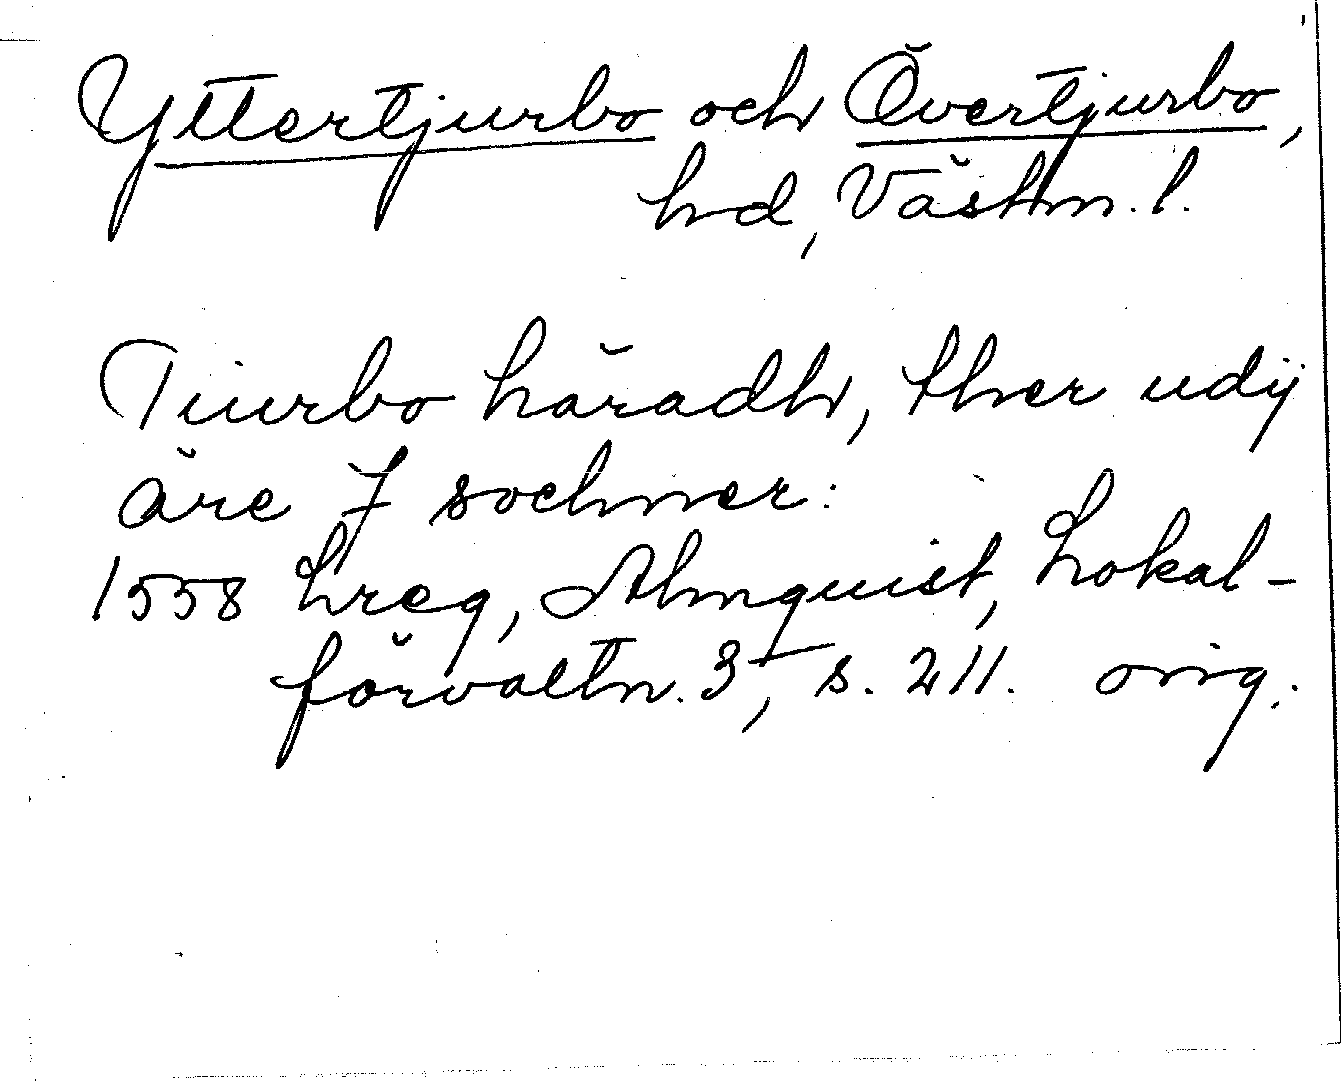 Yttertjurbo och Övertjurbo,
hd, Västm. l.
Tiurbo häradh, ther udij
äre 7 sochner:
1558 hreg, Almquist, Lokal-
förvaltn. 3, s. 211. orig.